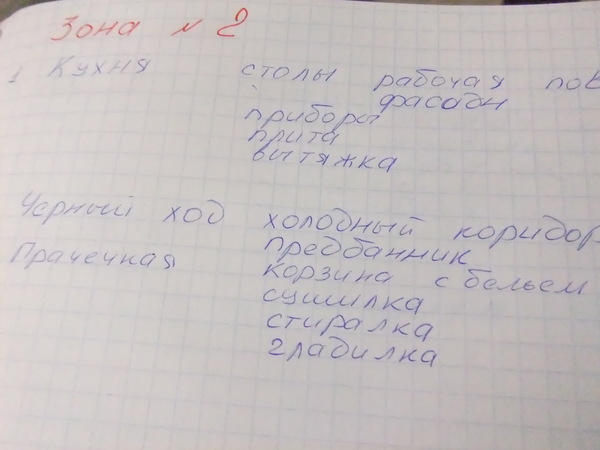 Зона № 2
1 Кухня столы рабочая пов
фасады
приборы
плита
вытяжка
Черный ход холодный коридор
предбанник
Прачечная корзина с бельем
сушилка
стиралка
гладилка